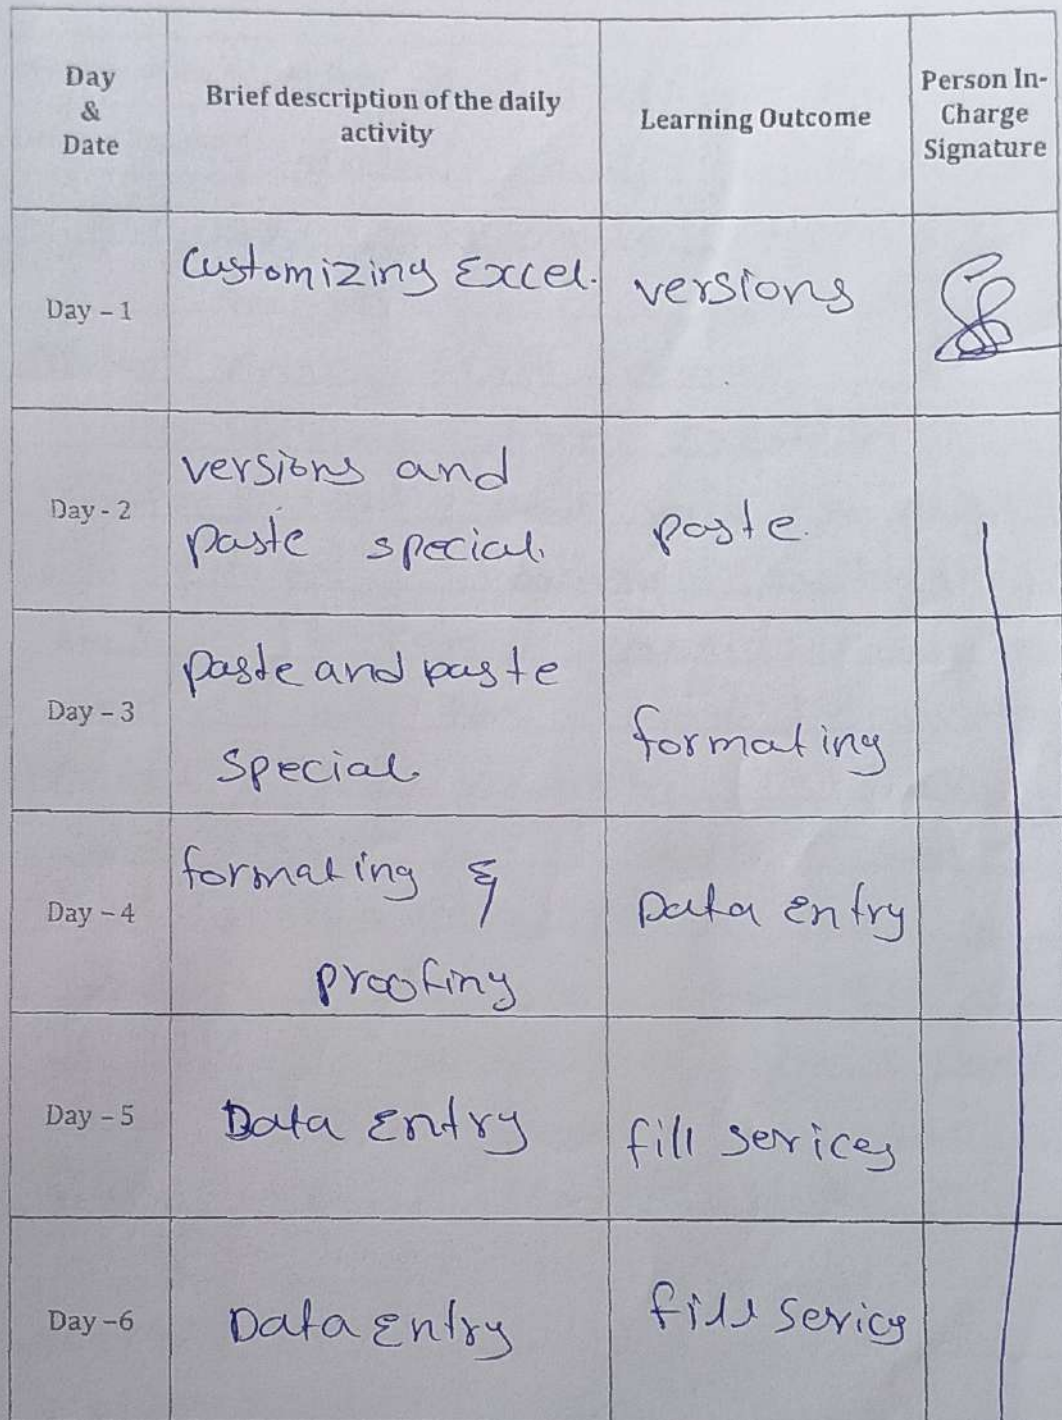 Day
&
Date
Brief description of the daily
activity
Learning Outcome
Person In-
Charge
Signature
Day – 1
Customizing Excel.
versions
Day - 2
versions and
paste special.
paste.
Day – 3
paste and paste
special
formating
Day – 4
formating &
proofing
Data entry
Day – 5
Data Entry
fill serices
Day –6
Data Entry
fill serics